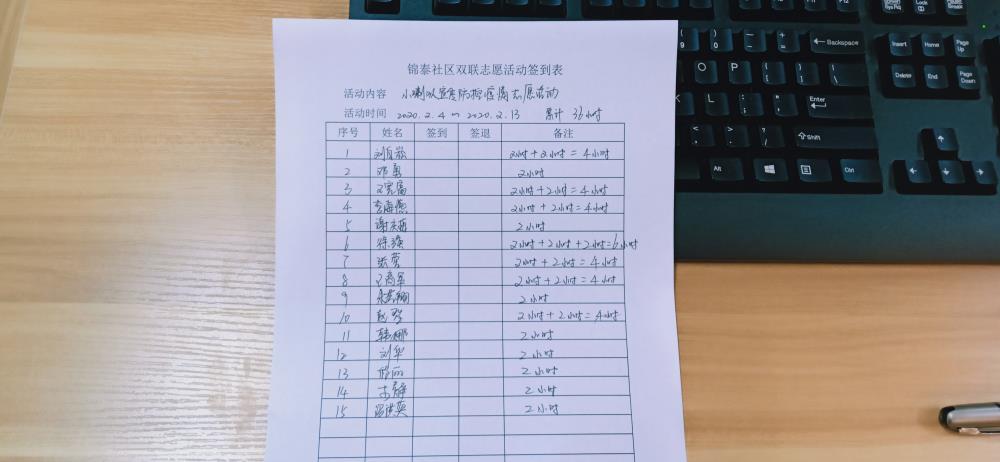 锦泰社区双联志愿活动签到表
活动内容 小喇叭宣传防控疫情志愿活动
活动时间 2020.2.4 ~ 2020.2.13 累计
序号 姓名 签到 签退 备注
1 2小时+2小时=4小时
2 邓勇 2小时
3 2小时+2小时=4小时
4 李海燕 2小时+2小时=4小时
5 2小时
6 徐瑛 2小时+2小时+2小时=6小时
7 张蓉 2小时+2小时=4小时
8 2小时+2小时=4小时
9 2小时
10 赵琴 2小时+2小时=4小时
11 韩娜 2小时
12 刘华 2小时
13 2小时
14 李静 2小时
15 2小时
Backspace
Insert Home Page Up
Delete End Page Down
Enter
Shift
Alt Ctrl
O P
K L